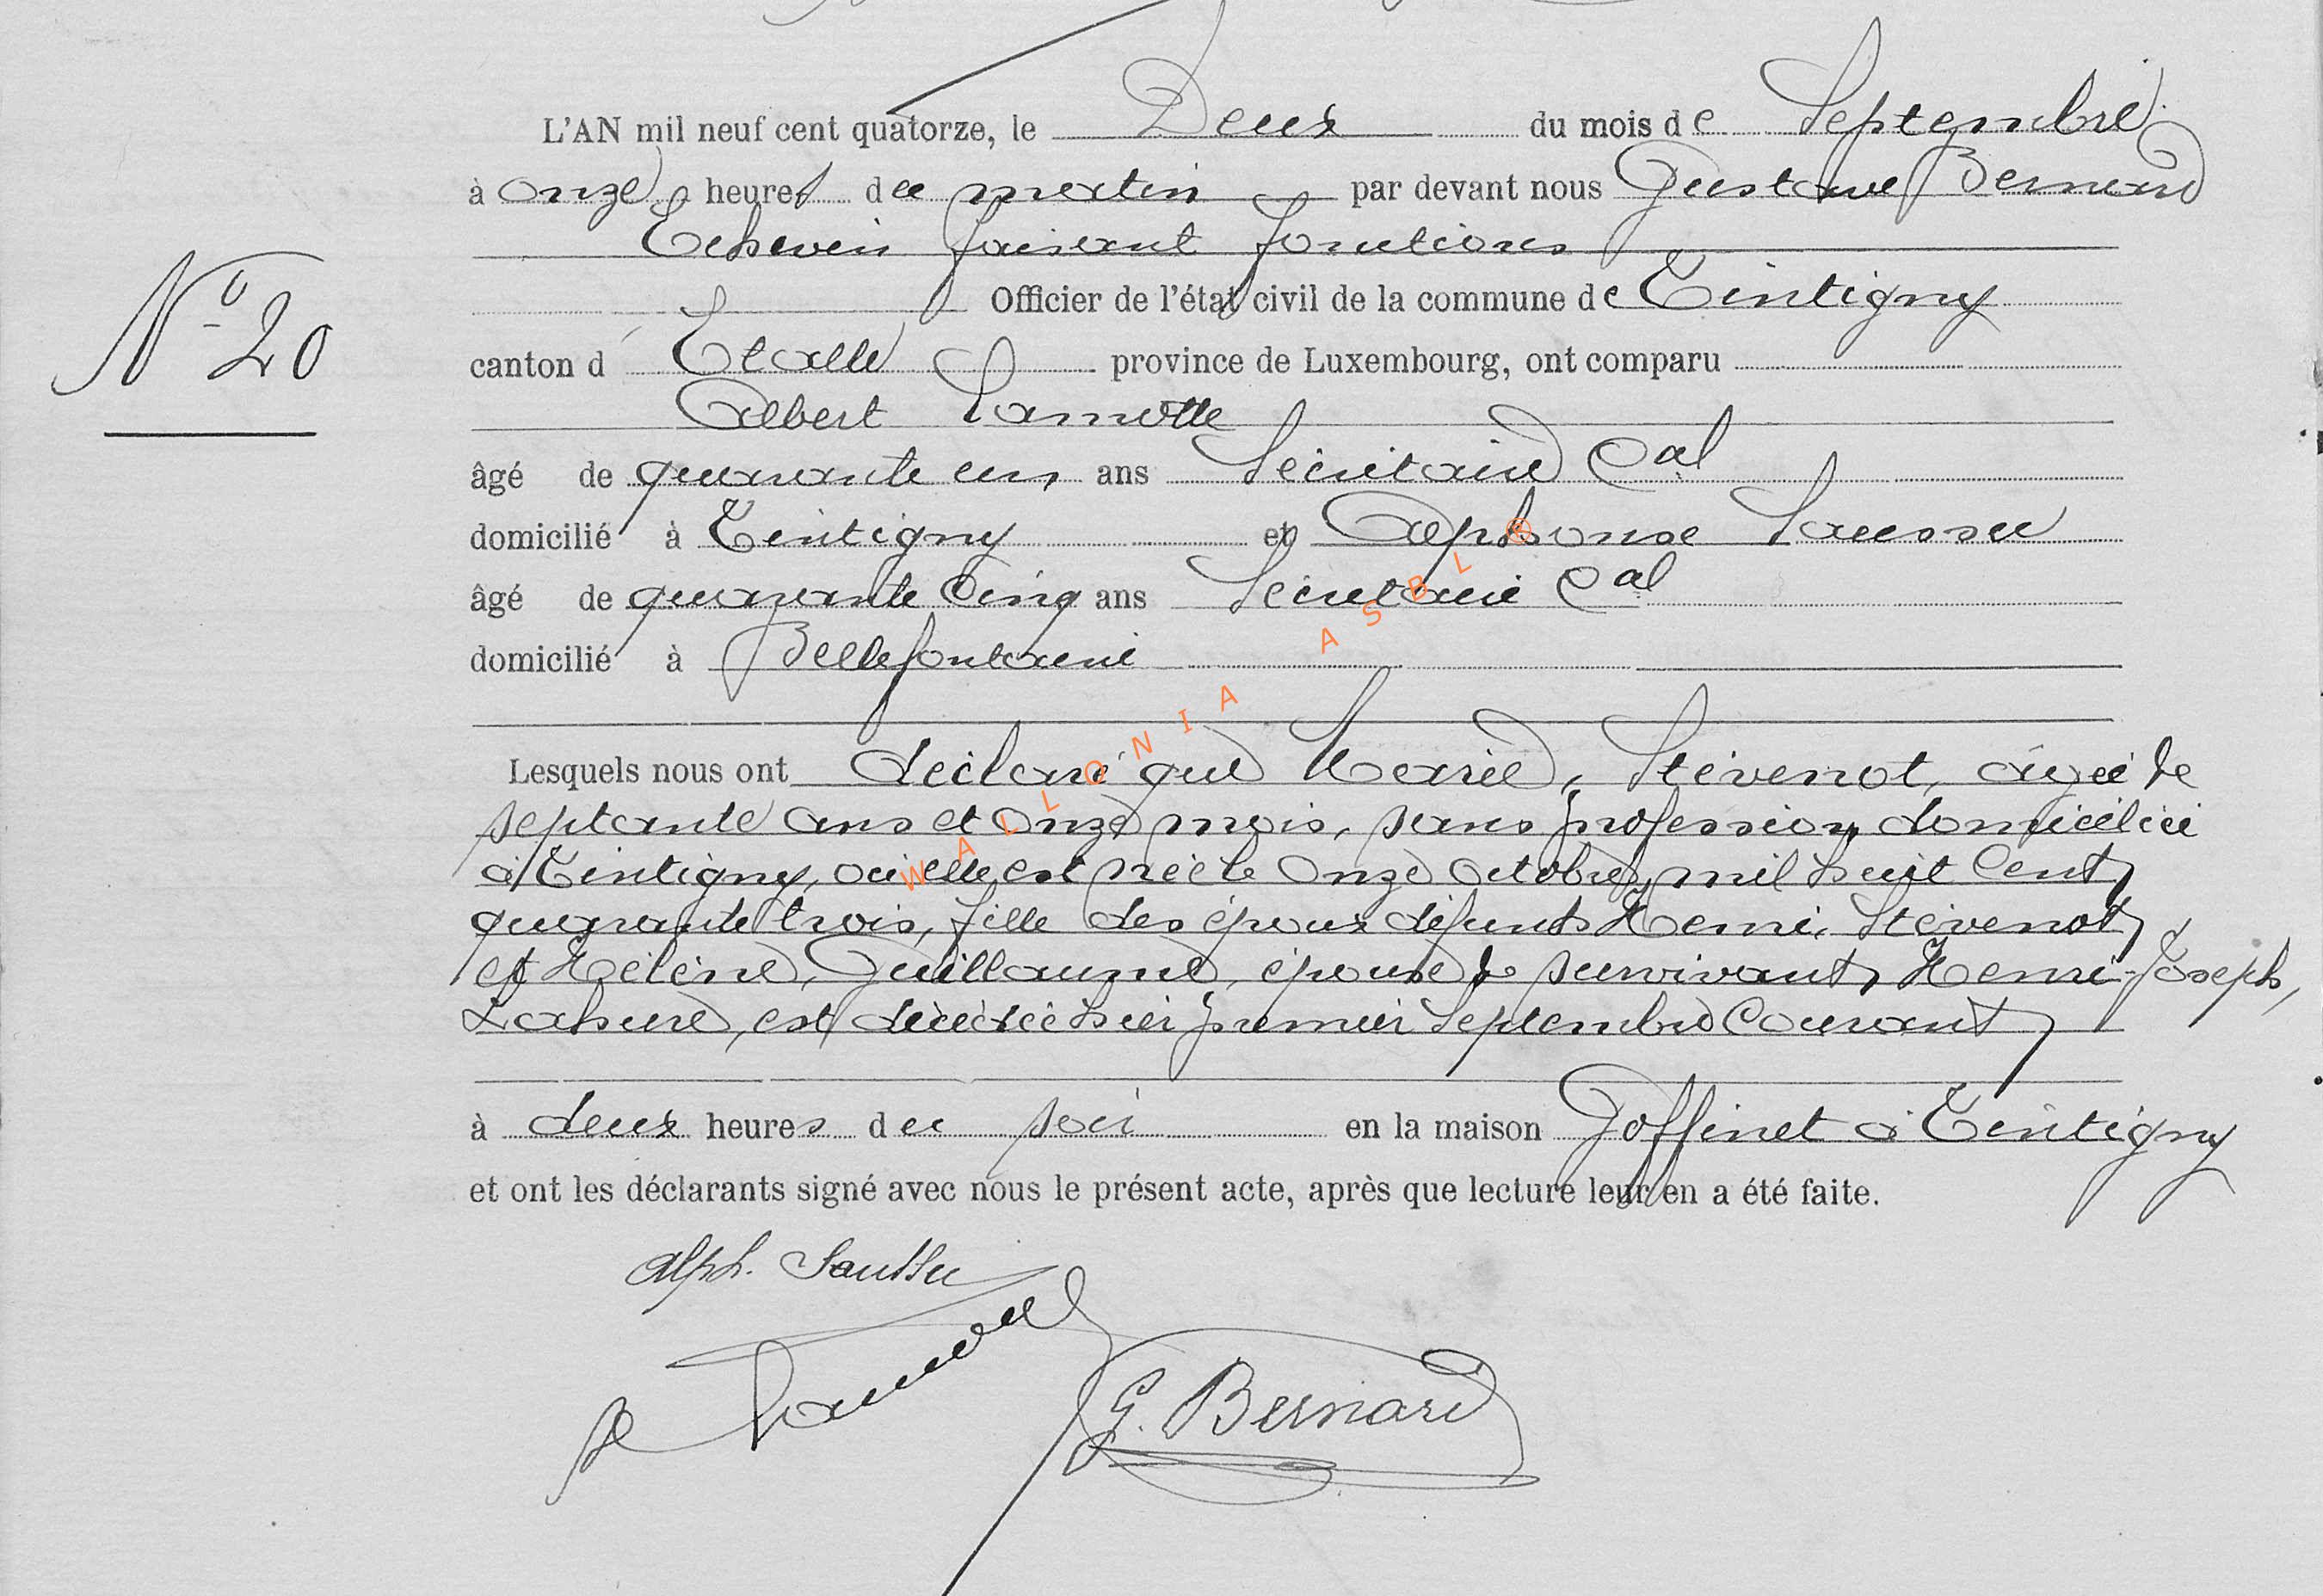 L'AN mil neuf cent quatorze, le Deux du mois de Septembre
à onze heures du matin par devant nous Gustave Bernard
Echevin faisant fonctions
Officier de l'état civil de la commune de Tintigny
N° 20
canton d'Etalle province de Luxembourg, ont comparu
Albert Lamotte
âgé de quarante un ans Secrétaire Cal
domicilié à Tintigny et Alphonse Saussu
âgé de quarante cinq ans Secrétaire Cal
domicilié à Bellefontaine
Lesquels nous ont déclaré que Marie, Stévenot, âgée de
septante ans et onze mois, sans profession, domiciliée
à Tintigny, où elle est née le onze Octobre mil huit cent
quarante trois, fille des époux défunts Henri, Stévenot
et Hélène, Guillaume, épouse de survivant, Henri-Joseph,
Lahure, est décédée hier premier Septembre Courant
à deux heures du soir en la maison Goffinet à Tintigny
et ont les déclarants signé avec nous le présent acte, après que lecture leur en a été faite.
Alph. Saussu
A Lamotte
G. Bernard
WALLONIA ASBL ®